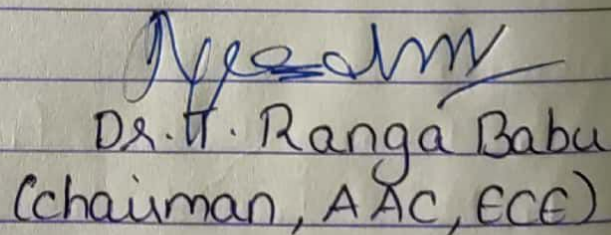 Dr. T. Ranga Babu
(chairman, AAC, ECE)